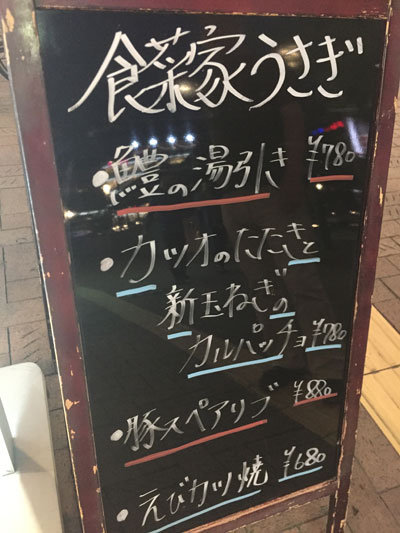 食菜家うさぎ
・鱧の湯引き ¥780
・カツオのたたきと
新玉ねぎの
カルパッチョ ¥780
・豚スペアリブ ¥880
・えびカツ焼 ¥680